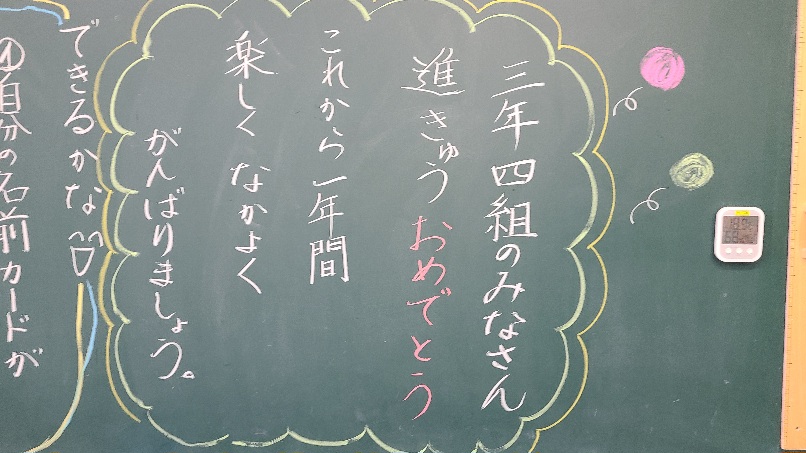 三年四組のみなさん
進きゅうおめでとう
これから一年間
楽しく なかよく
がんばりましょう。
できるかな
①自分の名前カードが